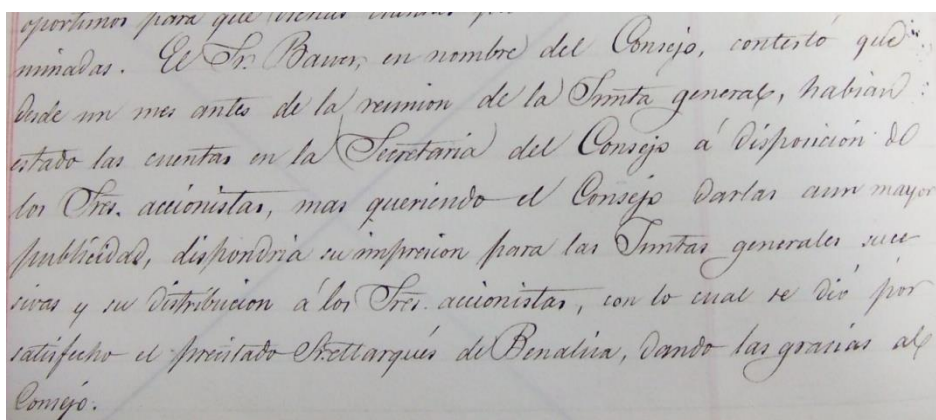 oportunos para que dichas cuentas
minadas. El Sr. Bauer, en nombre del Consejo, contestó que
desde un mes antes de la reunion de la Junta general, habian
estado las cuentas en la Secretaria del Consejo á disposición de
los Sres. accionistas, mas queriendo el Consejo darlas aun mayor
publicidad, dispondria su impresion para las Juntas generales suce
sivas y su distribucion á los Sres. accionistas, con lo cual se dió por
satisfecho el precitado Sr. Marqués de Benalúa, dando las gracias al
Consejo.